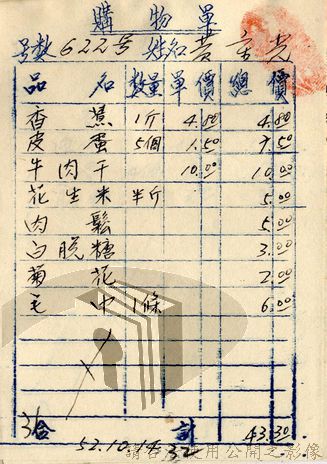 購物單
号數 622号 姓名 黃
品名 數量 單價 總價
香蕉 1斤 4.80 4.80
皮蛋 5個 1.50 7.50
牛肉干 10.00 10.00
花生米 半斤 5.00
肉鬆 5.00
白脱糖 3.00
菊花 2.00
毛巾 1條 6.00
合計 43.30
52.10.14.